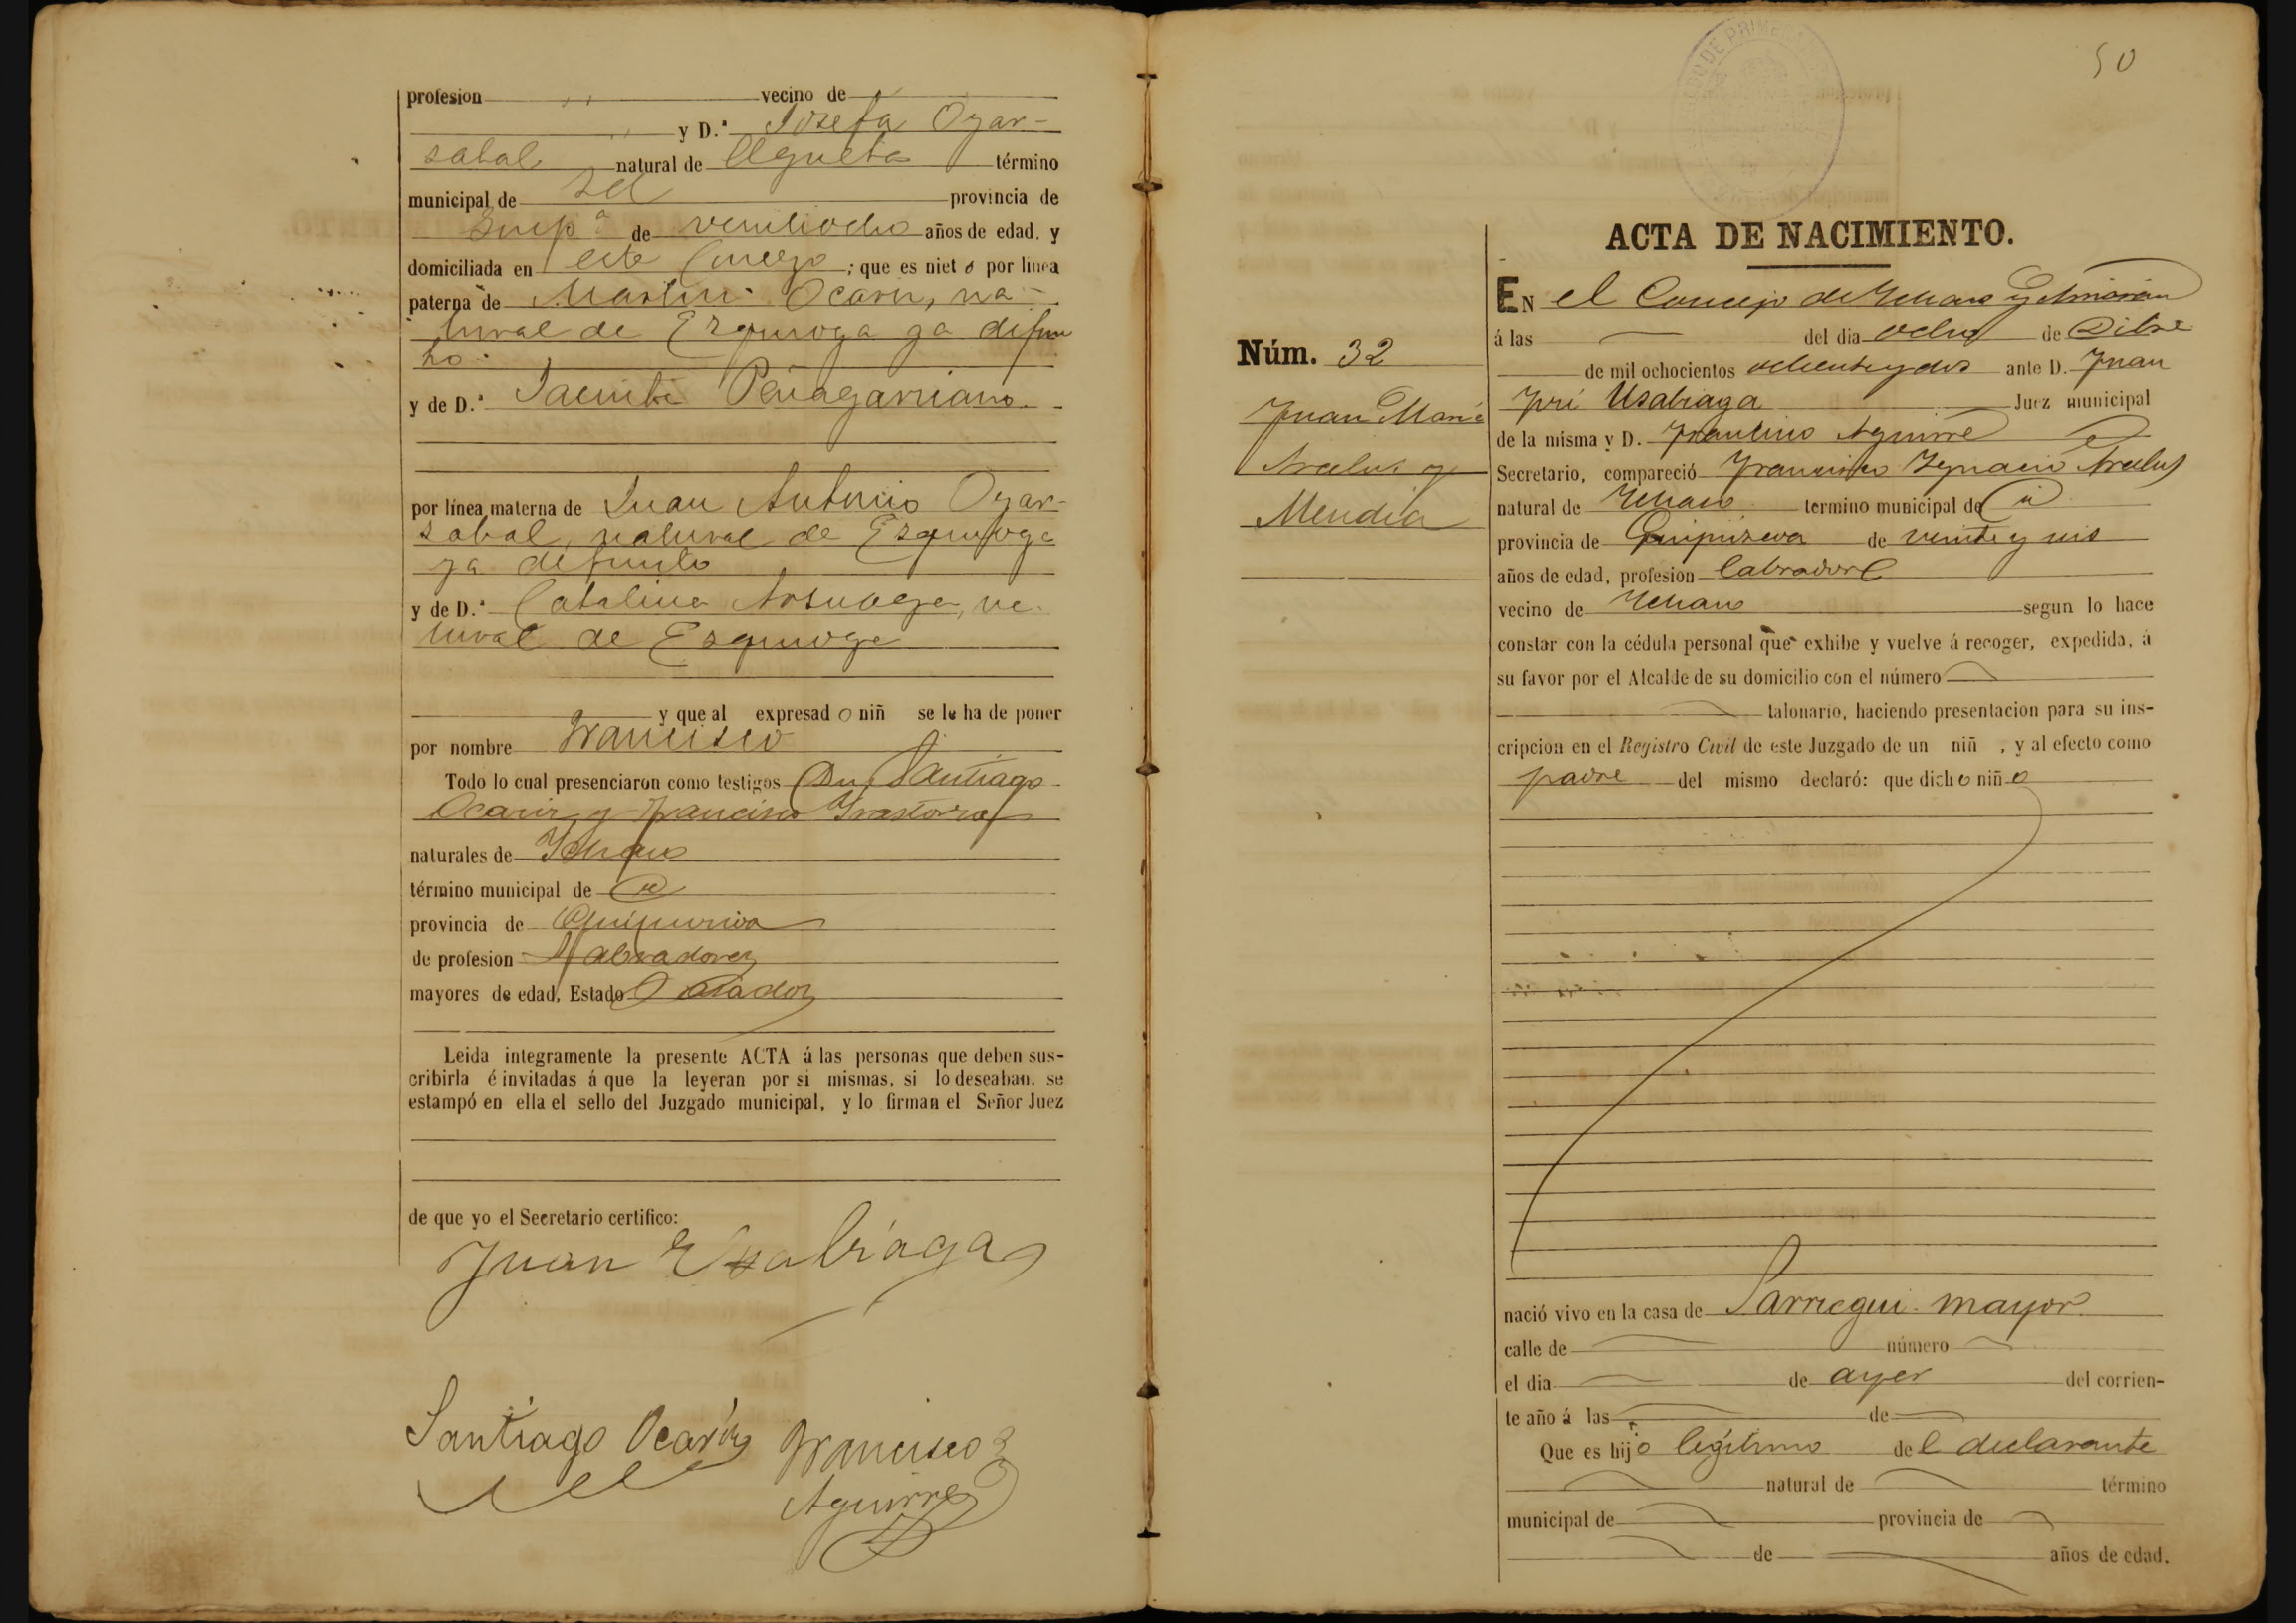 profesion vecino de
y D.ª Josefa Oyar-
zabal natural de término
municipal de provincia de
Guip.ª de veintiocho años de edad. y
domiciliada en este Concejo ; que es niet o por linea
paterna de Martin Ocariz, na-
tural de Ezquioga ya difun
to.
y de D.ª Peñagarricano.
por línea materna de Juan Antonio Oyar-
zabal, natural de Ezquioga
ya difunto
y de D.ª Catalina na-
tural de Ezquioga
y que al expresad o niñ se le ha de poner
por nombre Francisco
Todo lo cual presenciaron como testigos Dn Santiago
Ocariz y Francisco Irastorza
naturales de Ichaso
término municipal de id
provincia de Guipuzcoa
de profesion Labradores
mayores de edad, Estado Casados
Leida integramente la presente ACTA á las personas que deben sus-
cribirla é invitadas á que la leyeran por si mismas, si lo deseaban, se
estampó en ella el sello del Juzgado municipal, y lo firman el Señor Juez
de que yo el Secretario certifico:
Juan Usabiaga
Santiago Ocariz Francisco
Aguirre
50
ACTA DE NACIMIENTO.
Núm. 32
Juan Maria
Aracelus y
Mendia
EN el Concejo de Ichaso y
á las del dia ocho de Dibre
de mil ochocientos ochenta y dos ante D. Juan
José Usabiaga Juez municipal
de la misma y D. Francisco Aguirre
Secretario, compareció Francisco Ygnacio Aracelus
natural de Ichaso termino municipal de id
provincia de Guipuzcoa de veinte y seis
años de edad, profesion labrador
vecino de Ichaso segun lo hace
constar con la cédula personal que exhibe y vuelve á recoger, expedida, á
su favor por el Alcalde de su domicilio con el número
talonario, haciendo presentacion para su ins-
cripcion en el Registro Civil de este Juzgado de un niñ , y al efecto como
padre del mismo declaró: que dich o niñ o
nació vivo en la casa de Sarregui mayor.
calle de número
el dia de ayer del corrien-
te año á las de
Que es hij o legitimo de l declarante
natural de término
municipal de provincia de
de años de edad.